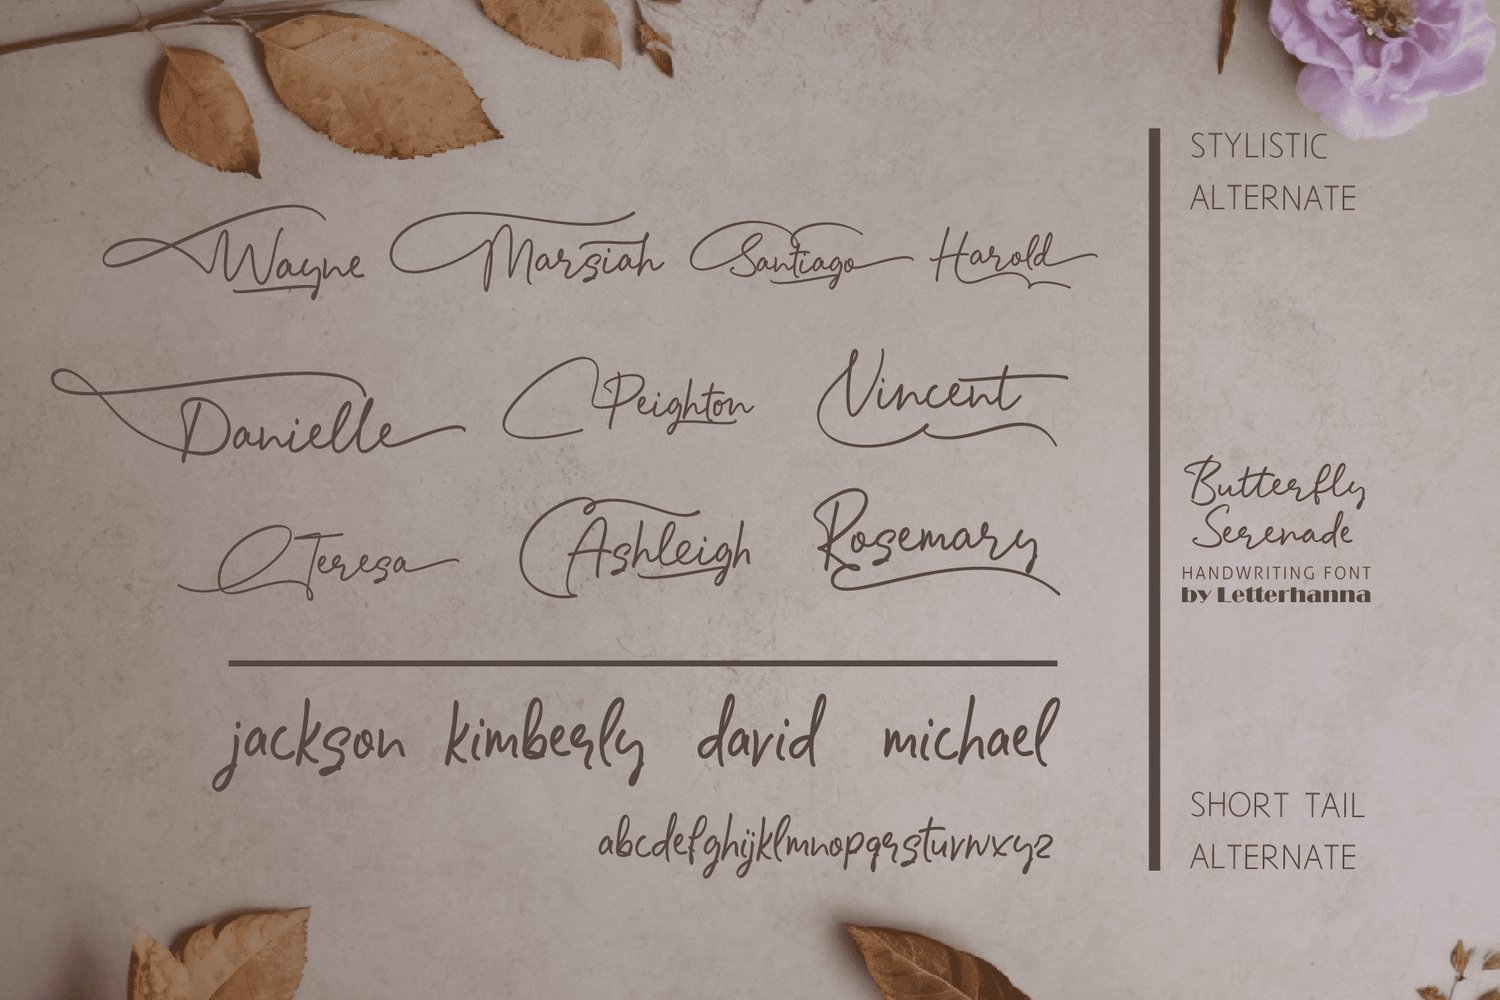 Wayne Marsiah Santiago Harold
Danielle Peighton Vincent
Teresa Ashleigh Rosemary
jackson kimberly david michael
abcdefghijklmnopqrstuvwxyz
STYLISTIC
ALTERNATE
Butterfly
Serenade
HANDWRITING FONT
by Letterhanna
SHORT TAIL
ALTERNATE